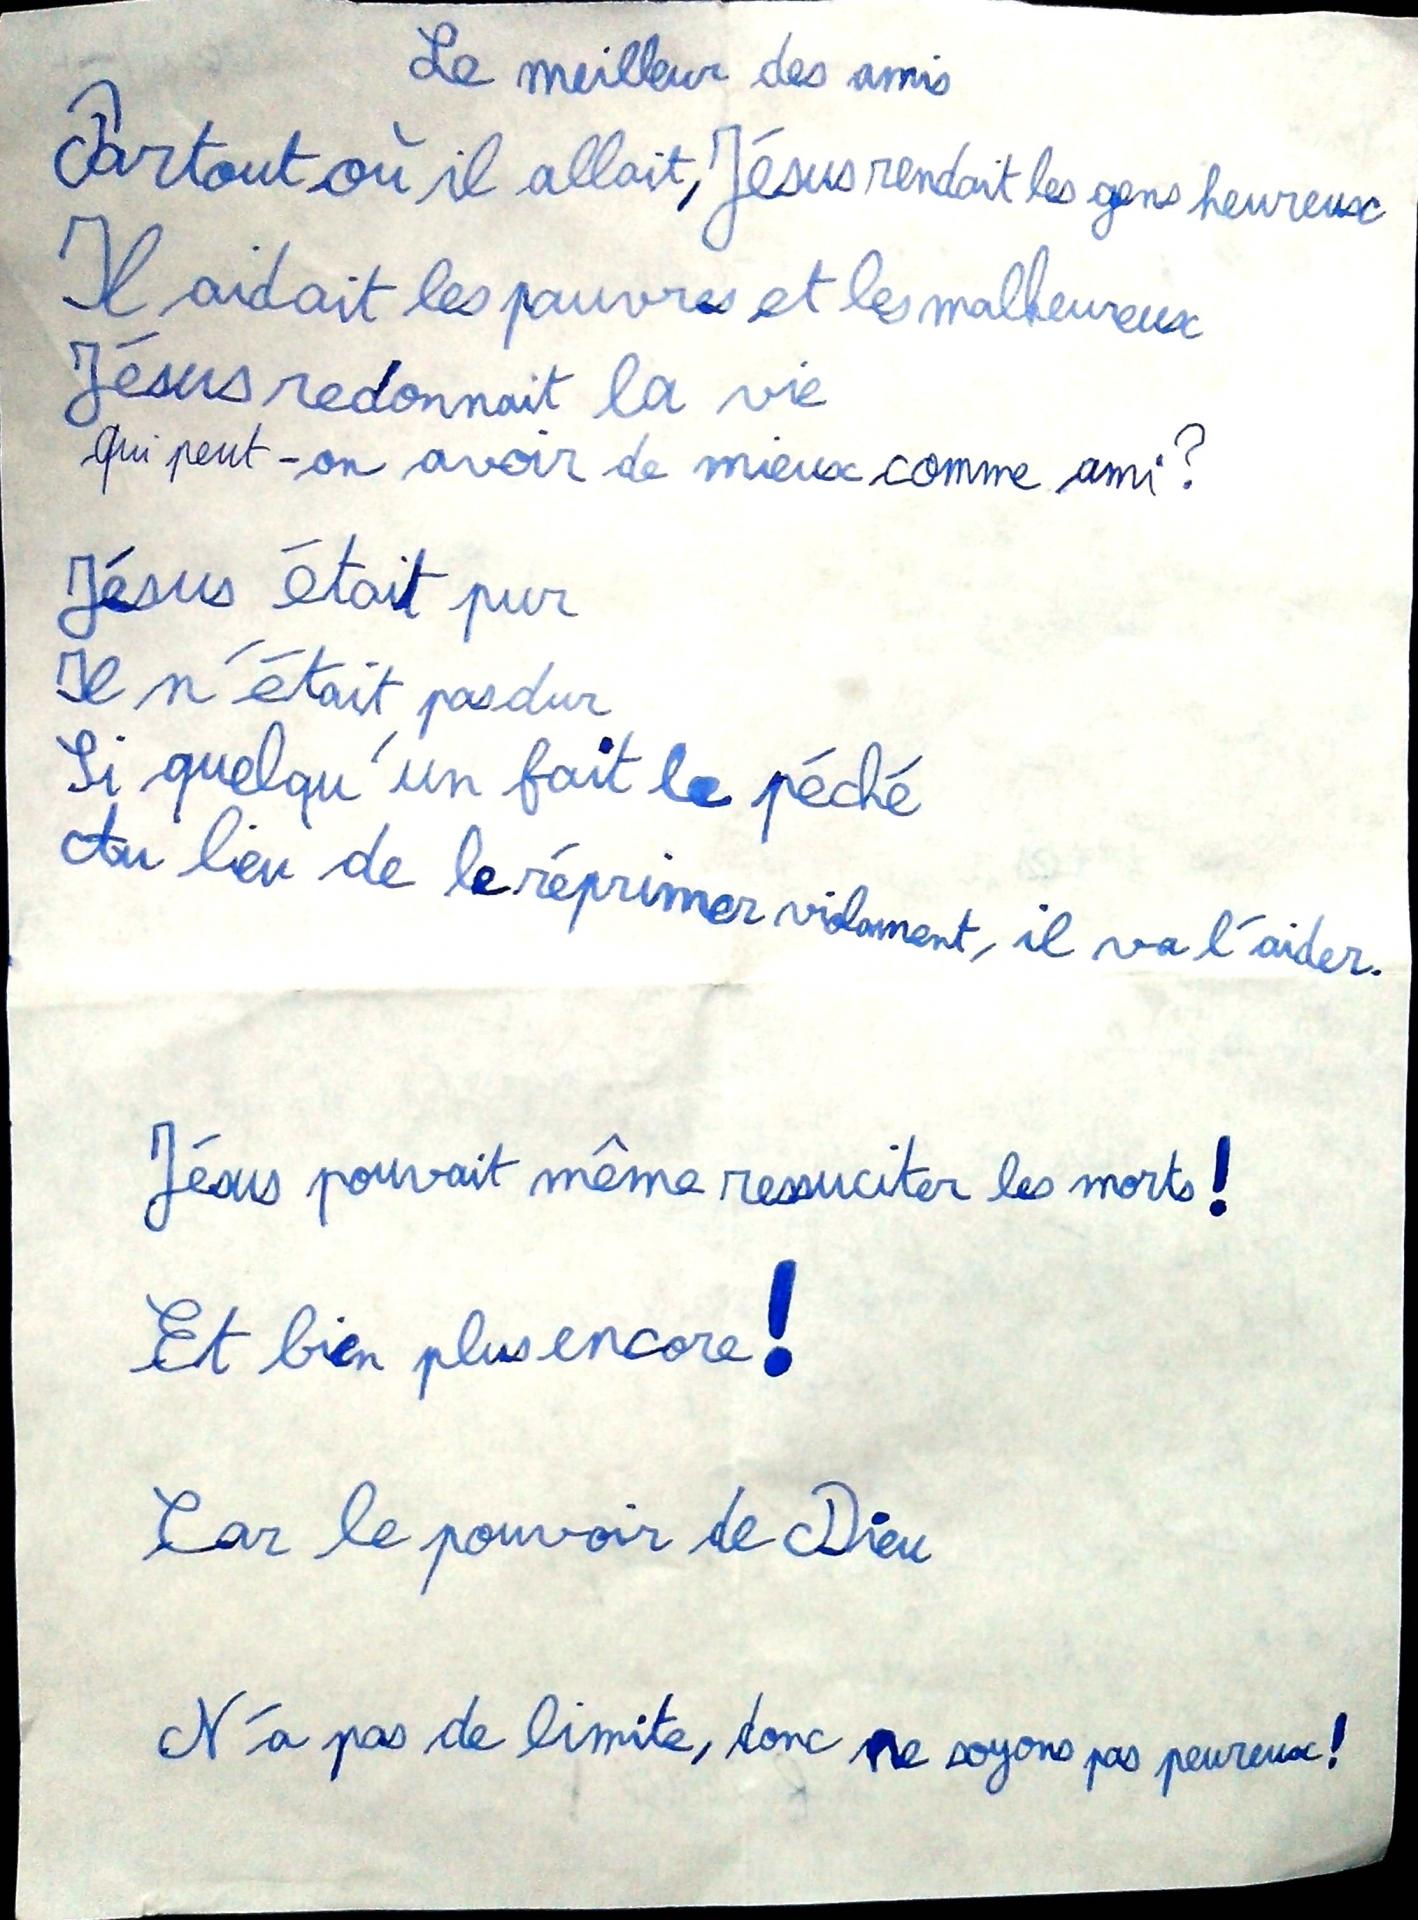 Le meilleur des amis
Partout où il allait, Jésus rendait les gens heureux
Il aidait les pauvres et les malheureux
Jésus redonnait la vie
qui peut-on avoir de mieux comme ami?
Jésus était pur
Il n'était pas dur
Si quelqu'un fait le péché
Au lieu de le réprimer violament, il va l'aider.
Jésus pouvait même ressuciter les morts!
Et bien plus encore!
Car le pouvoir de Dieu
N'a pas de limite, donc ne soyons pas peureux!